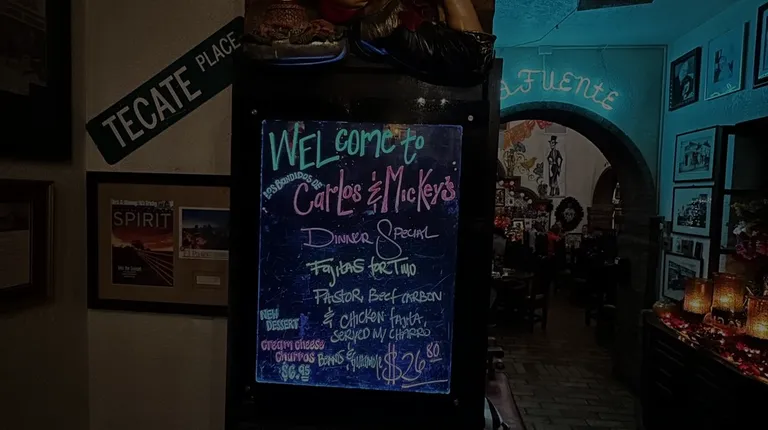 TECATE PLACE
SPIRIT
WELCOME to
LOS BANDIDOS DE
CARLOS & MICKEY'S
DINNER SPECIAL
FAJITAS FOR TWO
PASTOR, BEEF CARBON
& CHICKEN FAJITA,
SERVED W/ CHARRO
BEANS &
$26.80
NEW
DESSERT
CREAM CHEESE
CHURROS
$6.95
LA FUENTE